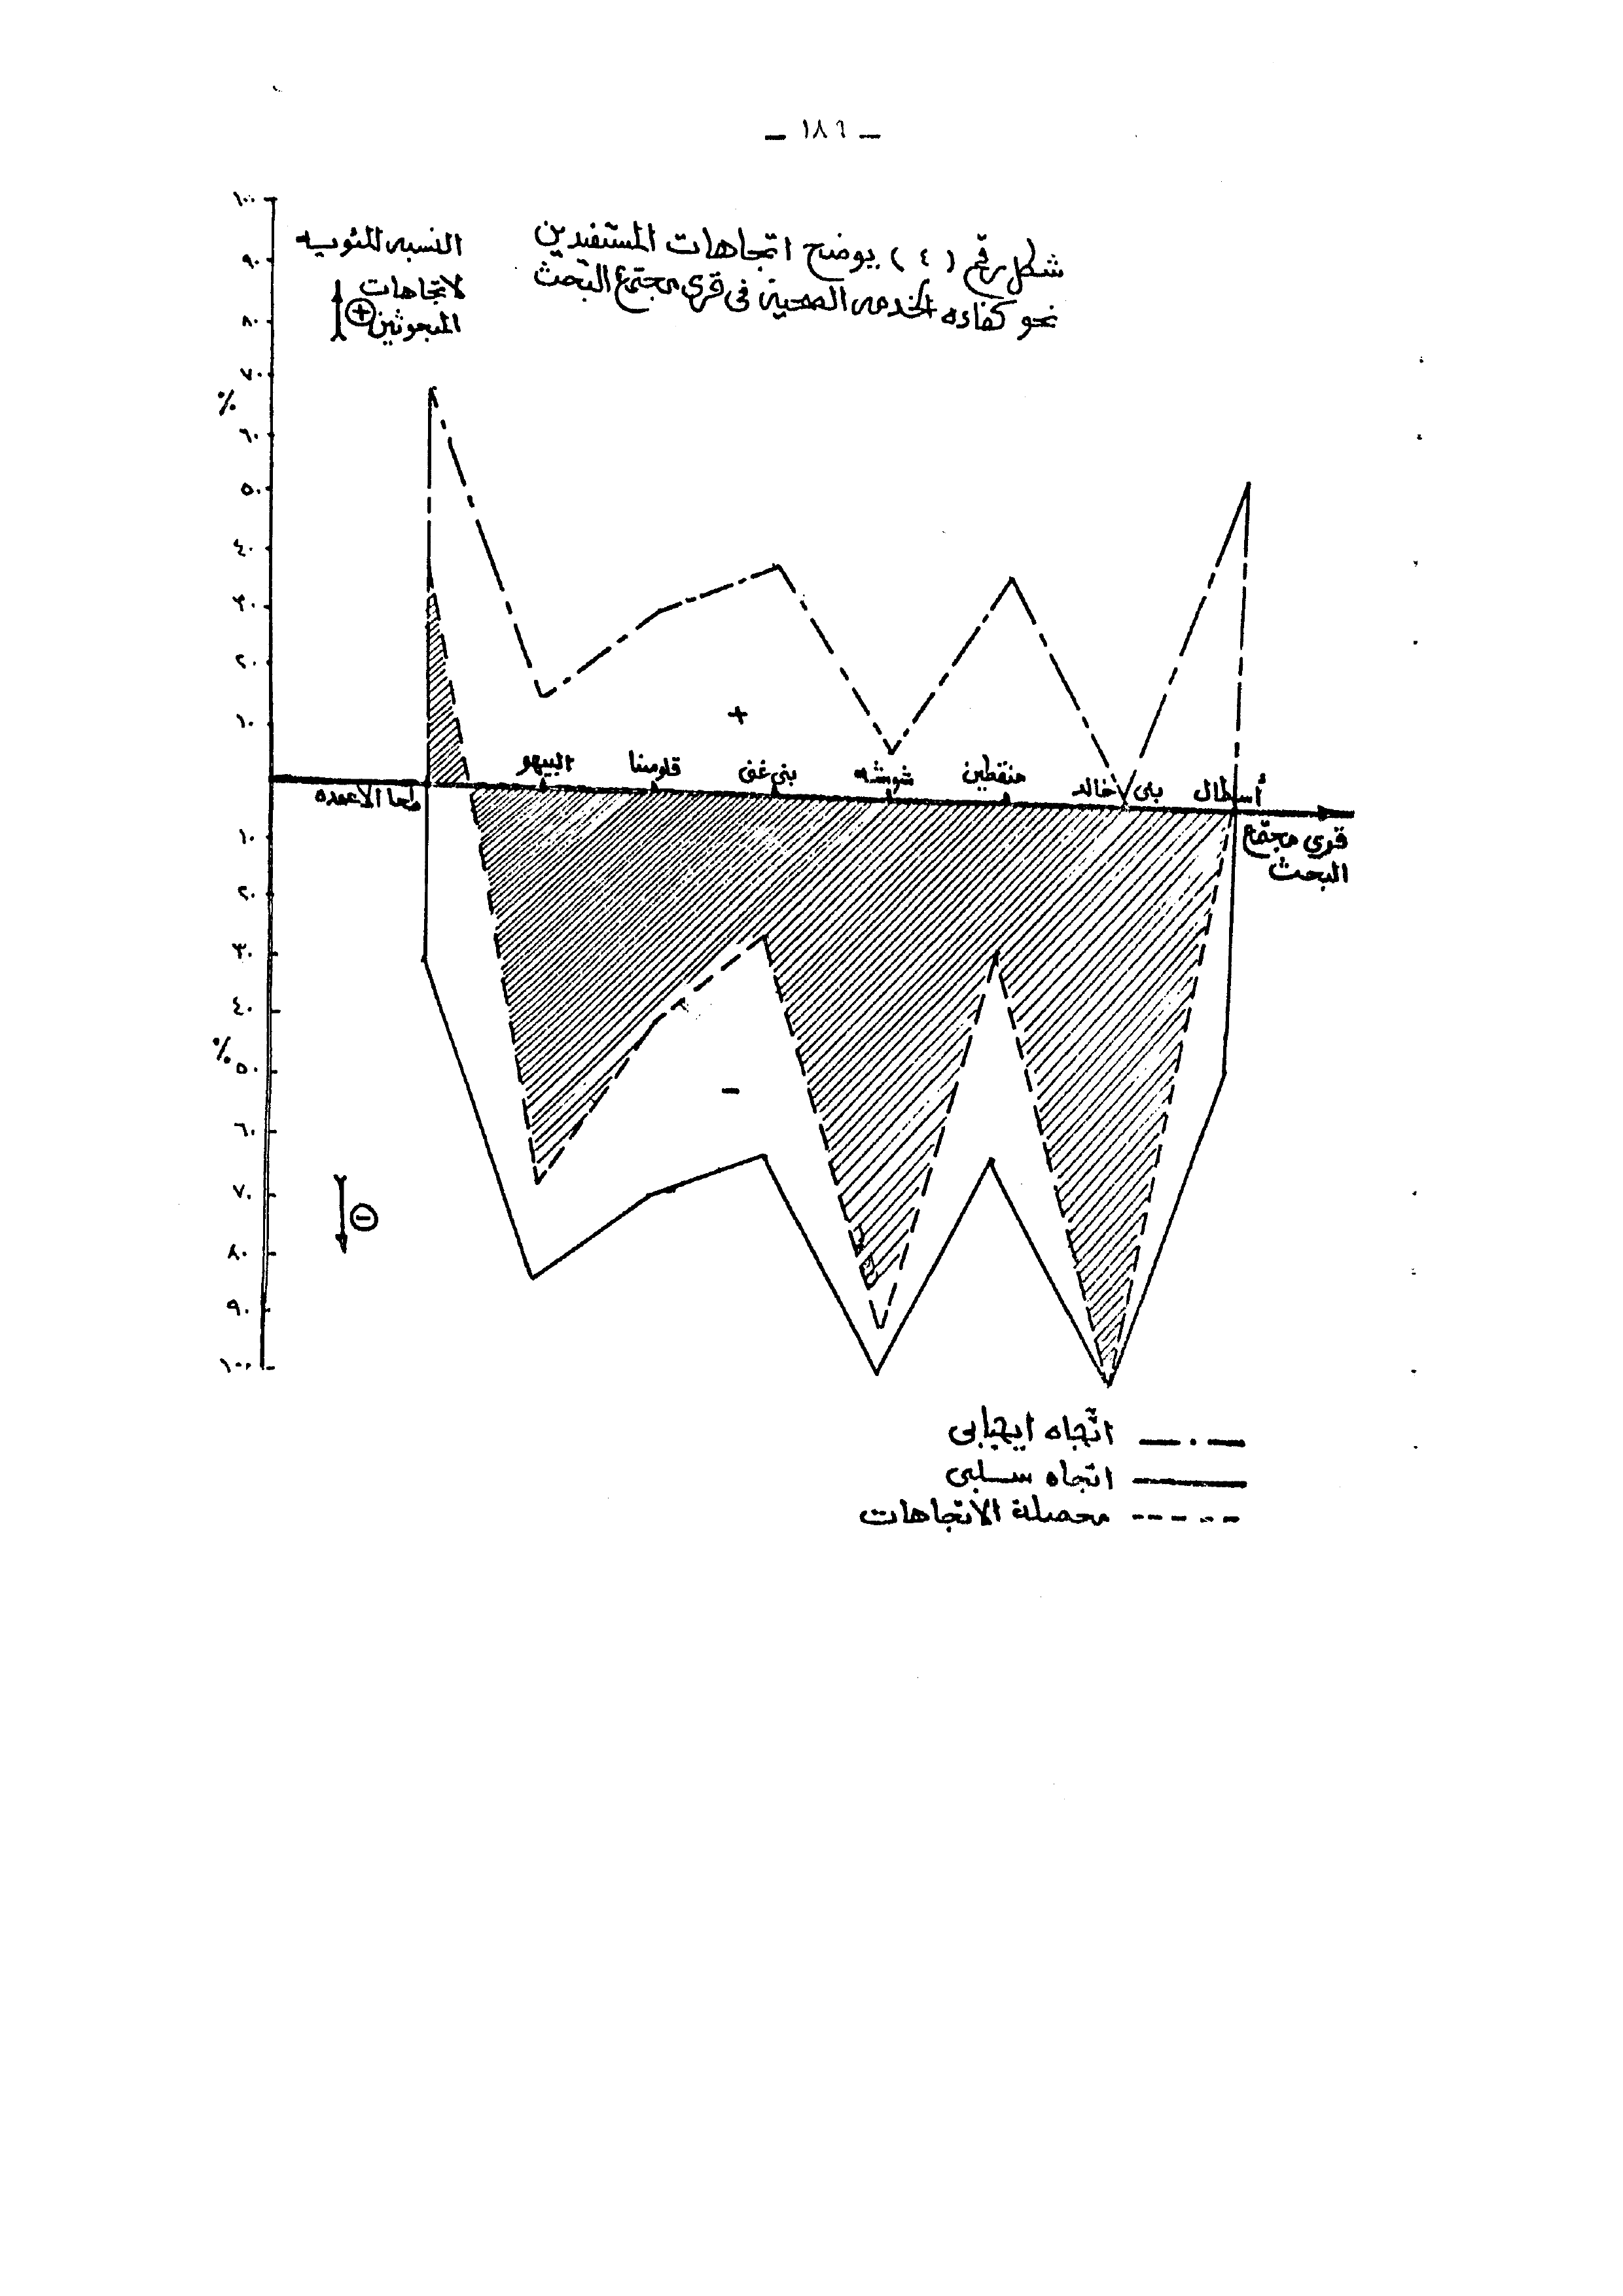 – ١٨٦ –
شكل رقم (٤) يوضح اتجاهات المستفيدين
نحو كفاءه الخدمه الصحية فى قرى مجتمع البحث
النسبه المئويه
لاتجاهات
المبحوثين +
١٠٠
٩٠
٨٠
٧٠
%
٦٠
٥٠
٤٠
٣٠
٢٠
١٠
+
طحا الاعمده
البيهو
قلوصنا
بنى غنى
شوشه
منقطين
بنى خالد
أسطال
قرى مجتمع
البحث
١٠
٢٠
٣٠
٤٠
%
٥٠
٦٠
٧٠
٨٠
٩٠
١٠٠
-
-
اتجاه ايجابى
اتجاه سلبى
محصلة الاتجاهات